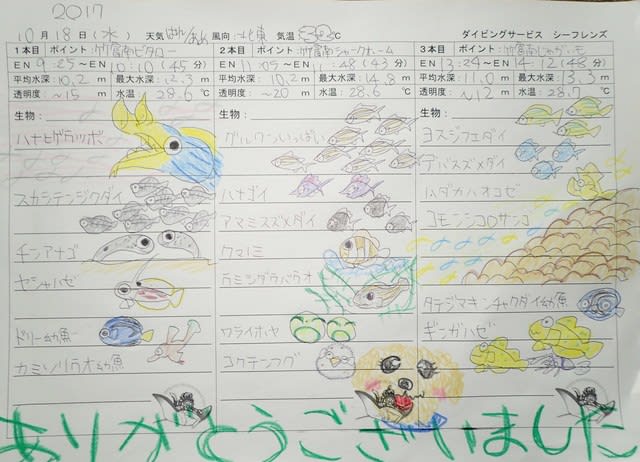 2017
10月18日(水) 天気 はれ/あめ 風向:北東 気温 ℃ ダイビングサービス シーフレンズ
1本目 ポイント:竹富南ビタロー
EN 9:25〜EN 10:10(45分)
平均水深:10.2m 最大水深:12.3m
透明度:~15m 水温:28.6℃
生物:
ハナヒゲウツボ
スカシテンジクダイ
チンアナゴ
ヤシャハゼ
ドリー幼魚
カミソリウオ幼魚
2本目 ポイント:竹富南シャークホーム
EN 11:05〜EN 11:48(43分)
平均水深:10.2m 最大水深:14.8m
透明度:~20m 水温:28.6℃
生物:
グルクンいっぱい
ハナゴイ
アマミスズメダイ
クマノミ
カミシダラバウオ
ワライホヤ
コクテンフグ
3本目 ポイント:竹富南じゃがいも
EN 13:24〜EN 14:12(48分)
平均水深:11.0m 最大水深:13.3m
透明度:~12m 水温:28.7℃
生物:
ヨスジフエダイ
デバスズメダイ
ハダカハオコゼ
コモンシコロサンゴ
タテジマキンチャクダイ幼魚
ギンガハゼ
ありがとうございました